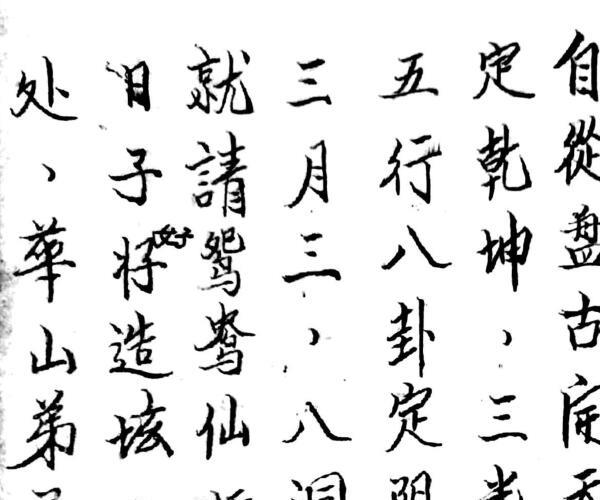 自從盤古定
定乾坤、三
五行八卦定
三月三、八洞
就請鴛鴦仙
日子好将造
处、華山弟